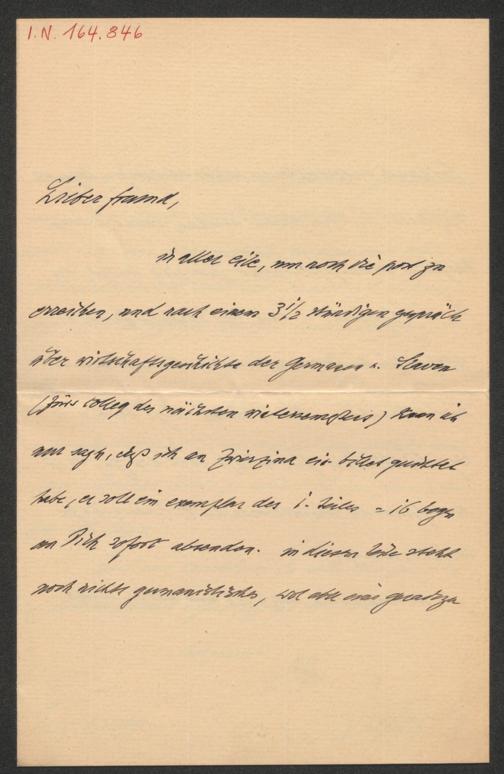 I.N. 164.846
Lieber freund,
in aller eile, um noch die post zu
erreichen, und nach einem 3 1/2 stündigen gespräch
über wirtschaftsgeschichte der Germanen u. Slaven
(fürs colleg des nächsten wintersemesters) kann ich
nur sagen, daß ich an Zwierzina ein billet gerichtet
habe, er soll ein exemplar des 1. teiles = 16 bogen
an Dich sofort absenden. in diesem teile steht
noch nichts germanistisches, wol aber eine geradezu